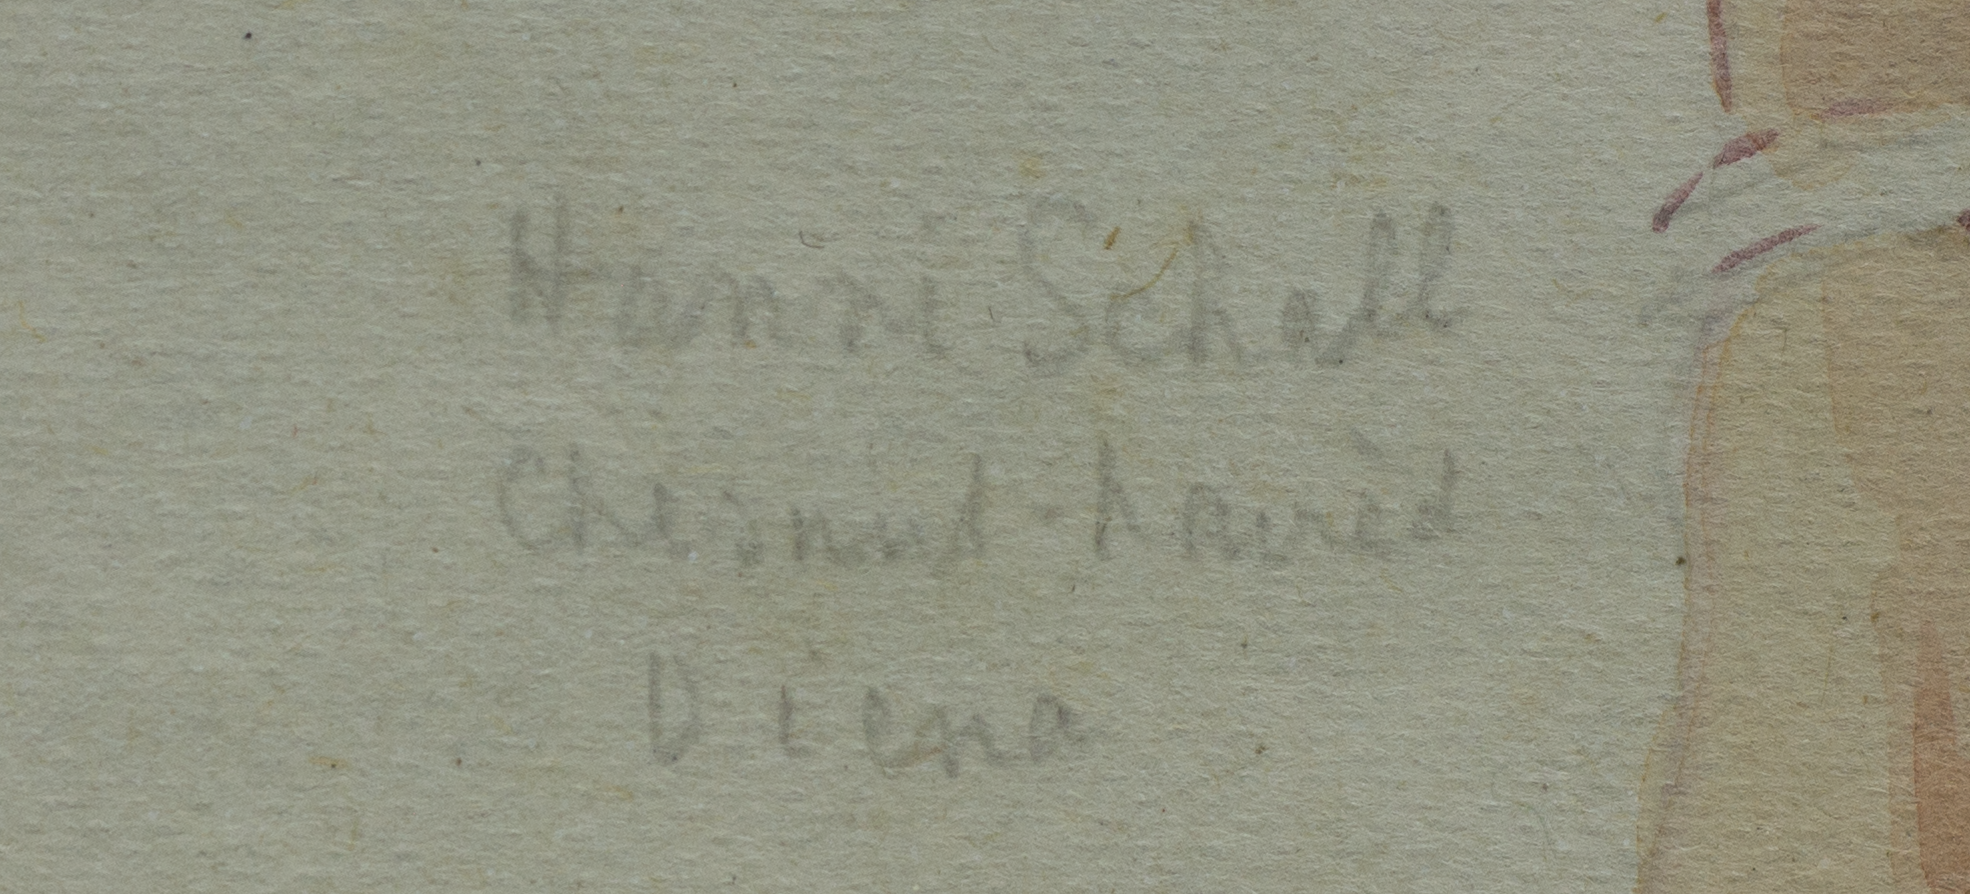 Hanni Schall
Chesnut-haired
Diena